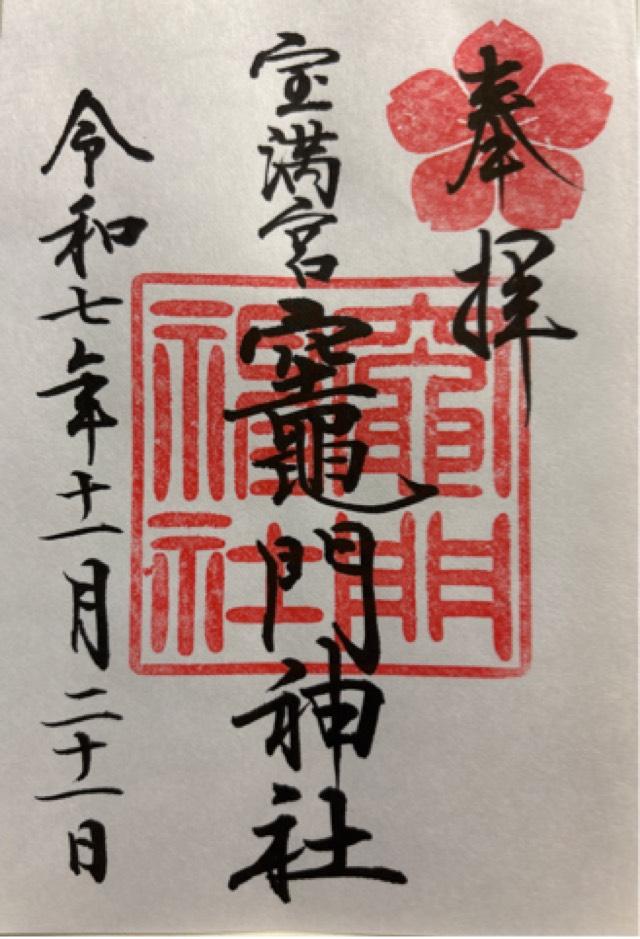 奉拝
宝満宮竈門神社
令和七年十一月二十一日
竈門神社